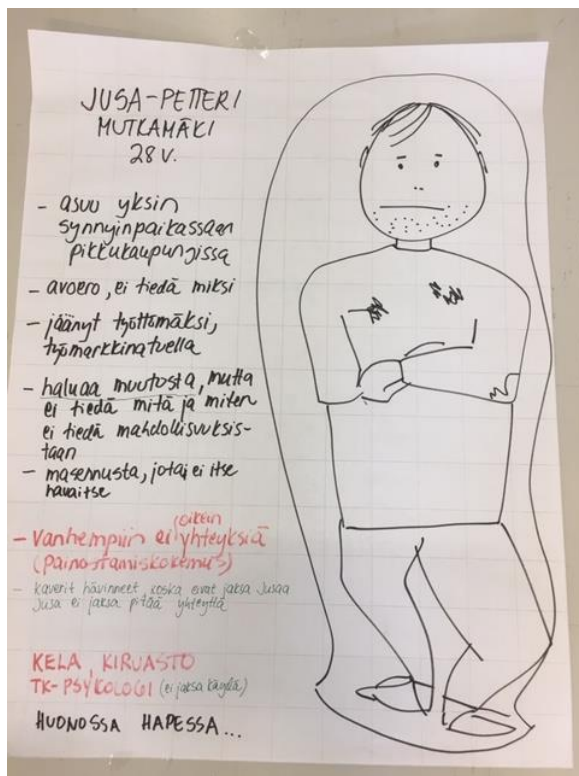 JUSA-PETTERI
MUTKAMÄKI
28 V.
- asuu yksin
synnyinpaikassaan
pikkukaupungissa
- avoero, ei tiedä miksi
- jäänyt työttömäksi,
työmarkkinatuella
- haluaa muutosta, mutta
ei tiedä mitä ja miten
ei tiedä mahdollisuuksis-
taan
- masennusta, jota ei itse
havaitse
(oikein
- Vanhempiin ei yhteyksiä
(painostamiskokemus)
- kaverit hävinneet koska eivät jaksa Jusaa
Jusa ei jaksa pitää yhteyttä
KELA, KIRJASTO
TK-PSYKOLOGI (ei jaksa käydä)
HUONOSSA HAPESSA...